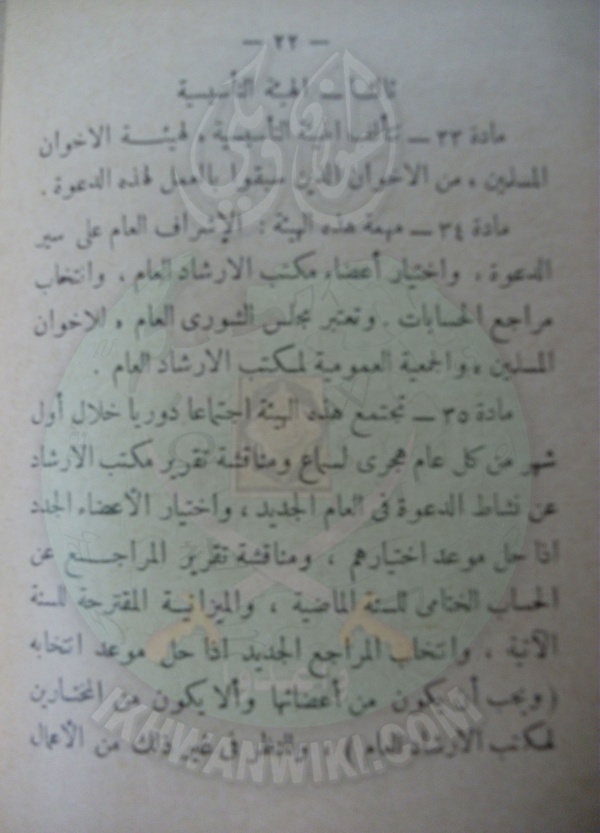 — ٢٢ —
ثالثا — الهيئة التأسيسية
مادة ٣٣ — تتألف الهيئة التأسيسية « لهيئة الاخوان
المسلمين » من الاخوان الذين سبقوا بالعمل لهذه الدعوة .
مادة ٣٤ — مهمة هذه الهيئة : الإشراف العام على سير
الدعوة ، واختيار أعضاء مكتب الارشاد العام ، وانتخاب
مراجع الحسابات . وتعتبر مجلس الشورى العام « للاخوان
المسلمين » والجمعية العمومية لمكتب الارشاد العام .
مادة ٣٥ — تجتمع هذه الهيئة اجتماعا دوريا خلال أول
شهر من كل عام هجرى لسماع ومناقشة تقرير مكتب الارشاد
عن نشاط الدعوة فى العام الجديد ، واختيار الأعضاء الجدد
اذا حل موعد اختيارهم ، ومناقشة تقرير المراجع عن
الحساب الختامى للسنة الماضية ، والميزانية المقترحة للسنة
الآتية ، وانتخاب المراجع الجديد اذا حل موعد انتخابه
( ويجب أن يكون من أعضائها وألا يكون من المختارين
لمكتب الارشاد العام ) . والنظر فى غير ذلك من الأعمال
IKHWANWIKI.COM